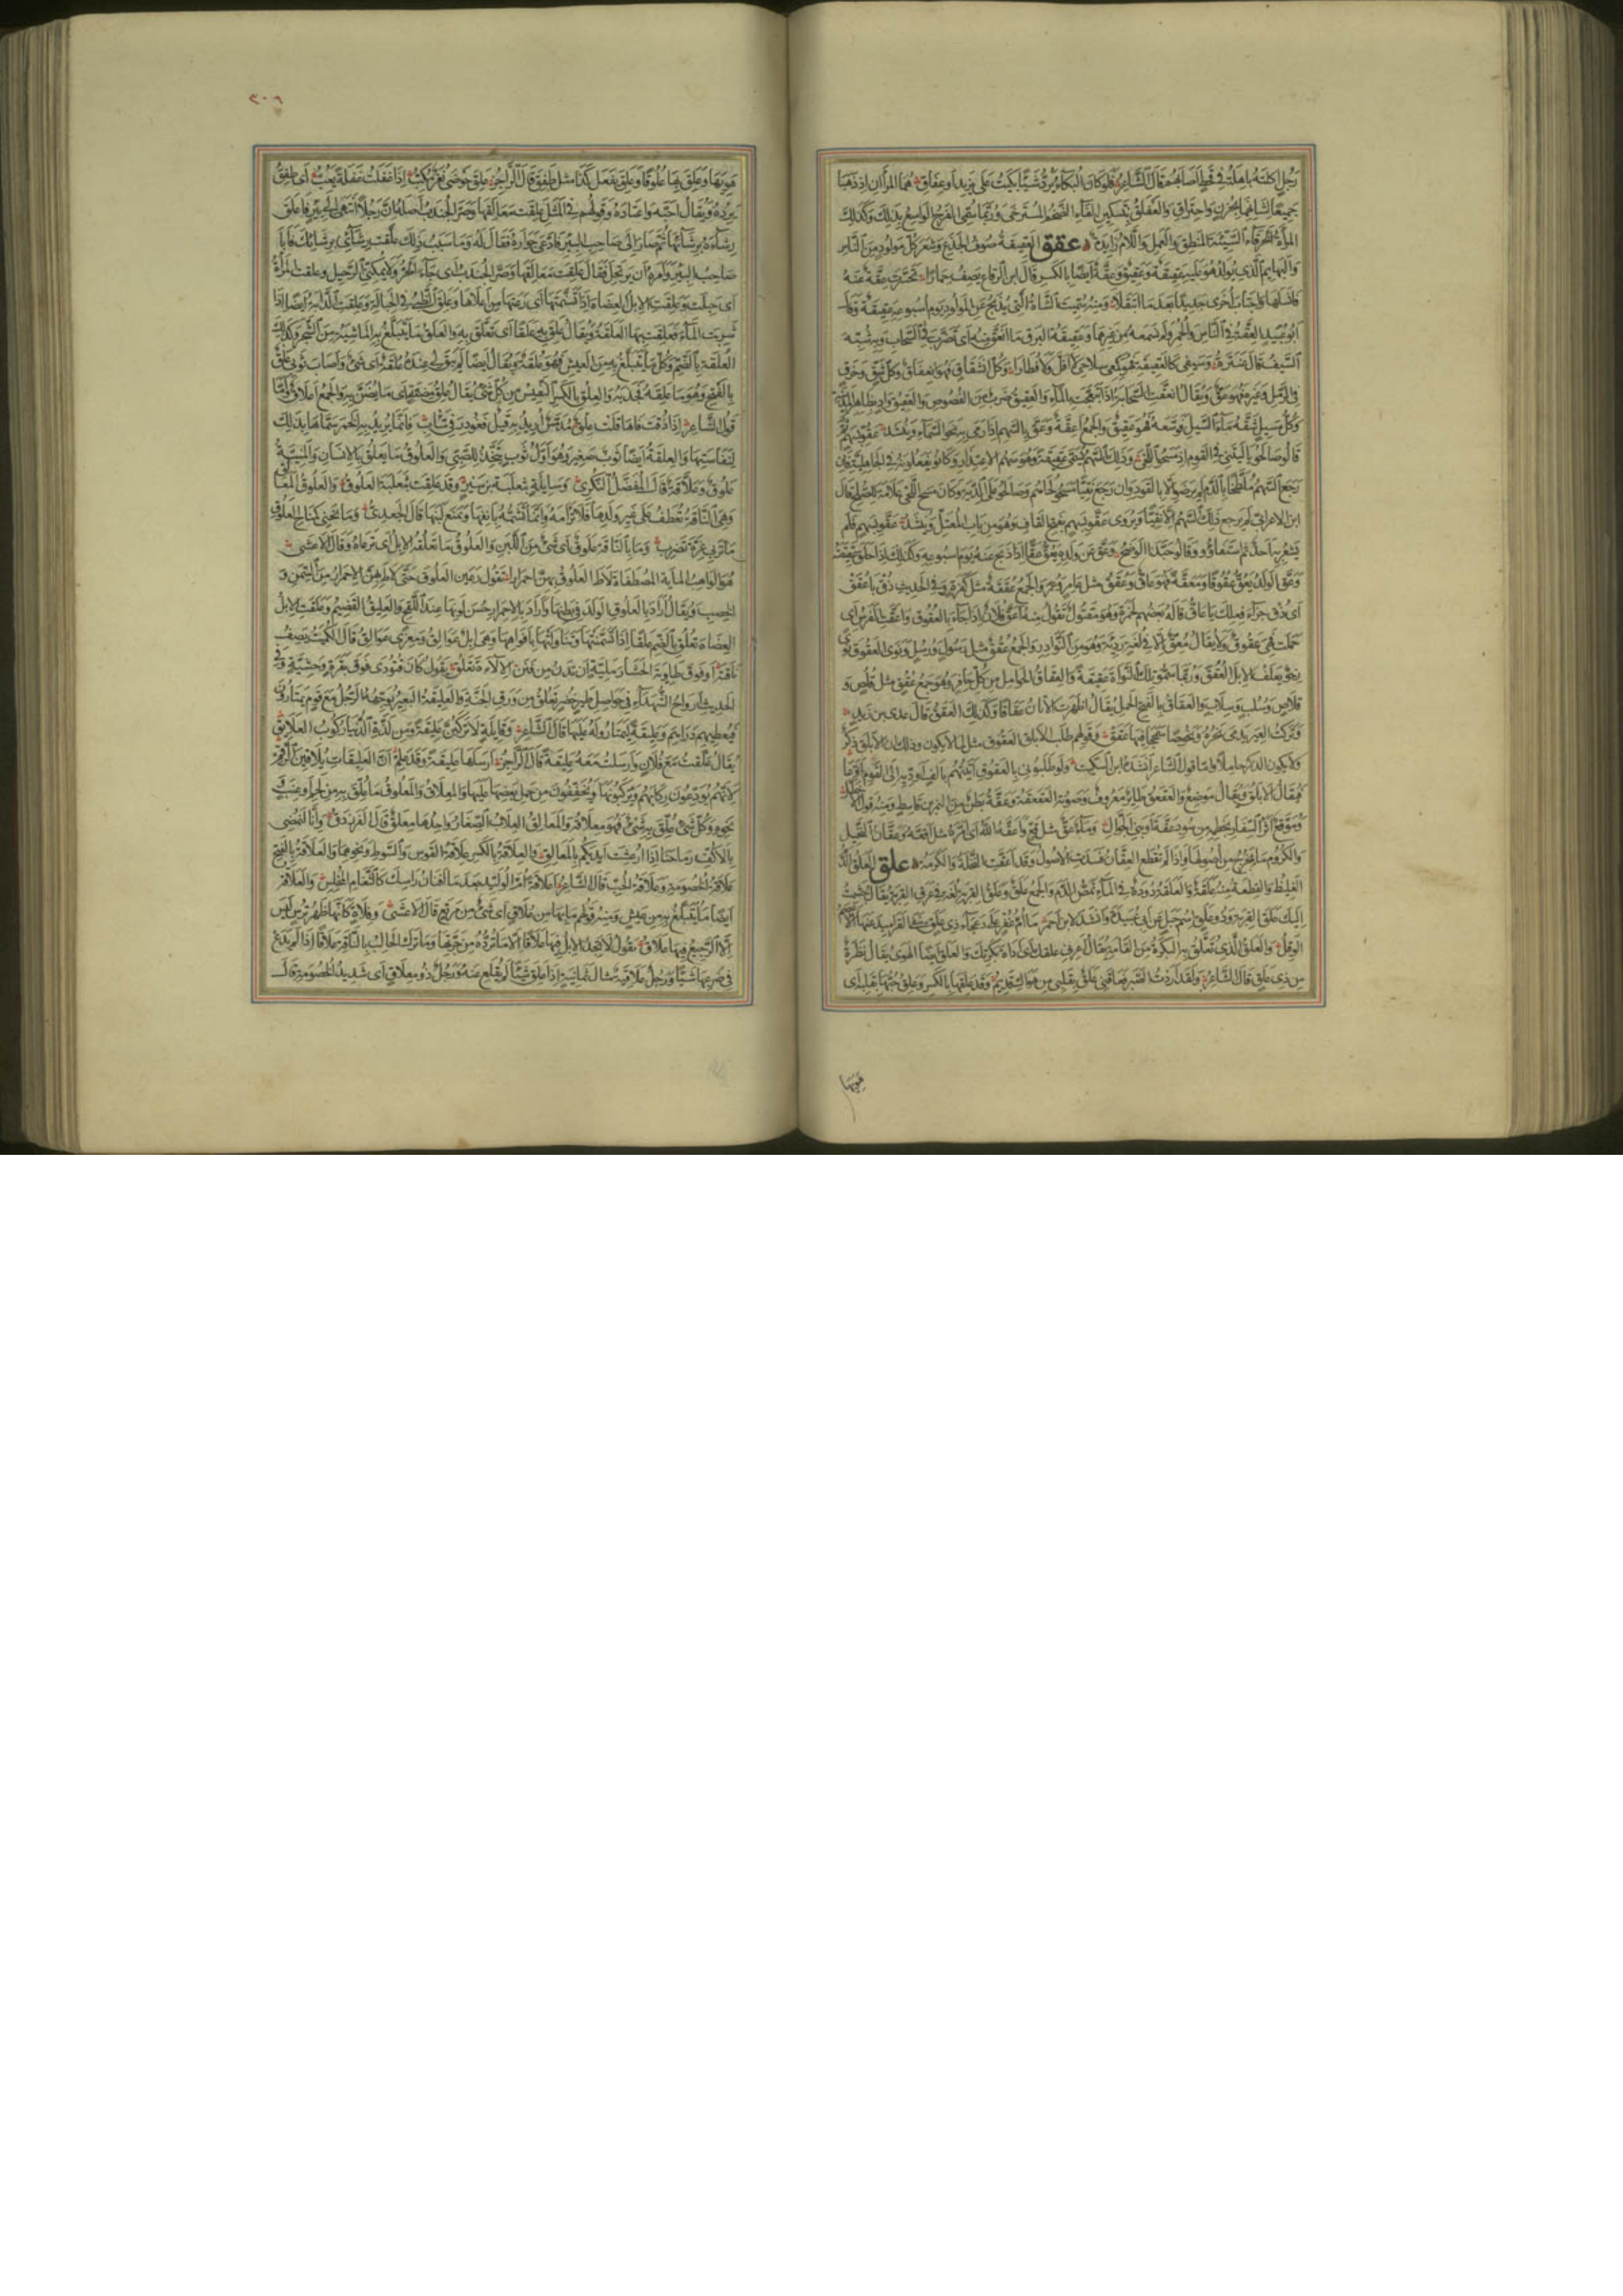 رجل اكلته باهلته في قحط اصابهم قال الشاعر فلو كان البكاء يرد شيئا بكيت على يزيد او عفاق هما المرآن اذ ذهبا
جميعا لشانهما بحزن واحتراق والعفلق بتسكين الفاء الضخم المسترخى وربما سمى الفرج الواسع بذلك وكذلك
المرأة الخرقاء السيئة المنطق والعمل واللام زايدة عقق العقيقة صوف الجذع وشعر كل مولود من الناس
والبهايم الذي يولد وهو عليه عقيقة وعقيق وعقة ايضا بالكسر قال ابن الرقاع يصف حمارا تحسرت عقة عنه
فانسلها واجتاب اخرى جديدا بعد ما ابتقلا ومنه سميت الشاة التي تذبح عن المولود يوم اسبوعه عقيقة وقال
ابو عبيد العقة في الناس والحمر ولم نسمعه من غيرهما وعقيقة البرق ما انعق منه اى تضرب في السحاب وبه شبه
السيف قال عنترة وسيفى كالعقيقة فهو كمعى سلاحى لا افل ولا فطارا وكل انشقاق فهو انعقاق وكل شق وخرق
في الرمل وغيره فهو عق ويقال انعقت السحابة اذا تبعجت بالماء والعقيق ضرب من الفصوص والعقيق واد بظاهر المدينة
وكل مسيل شقه ماء السيل فوسعه فهو عقيق والجمع اعقة وعق بالسهم اذا رمى به نحو السماء وينشد عقوا بسهم ثم
قالوا صالحوا يا ليتني في القوم اذ مسحوا اللحى وذلك السهم يسمى عقيقة وهو سهم الاعتذار وكانوا يفعلونه في الجاهلية فان
رجع السهم ملطخا بالدم لم يرضوا الا بالقود وان رجع نقيا مسحوا لحاهم وصالحوا على الدية وكان مسح اللحى علامة للصلح قال
ابن الاعرابي لم يرجع ذلك السهم الا نقيا ويروى عقوا بسهم بفتح القاف وهو من باب المعتل وينشد عقوا بسهم فلم
يشعر به احد ثم استفاؤوا وقالوا حبذا الوضح وعق عن ولده يعق عقا اذا ذبح عنه يوم اسبوعه وكذلك اذا حلق عقيقته
وعق الولد يعق عقوقا ومعقة فهو عاق وعقق مثل عامر وعمر والجمع عققة مثل كفرة وفي الحديث ذق يا عقق
اى ذق جزاء فعلك يا عاق قاله بعضهم لحمزة وهو مقتول تقول منه اعق فلان اذا جاء بالعقوق واعقت الفرس اى
حملت فهى عقوق ولا يقال معق الا في لغية ردية وهو من النوادر والجمع عقق مثل رسول ورسل ونوى العقوق نوى
رخو يعلف الابل العقق وربما سموا تلك النواة عقيقة والعقاق الحوامل من كل حافر وهو جمع عقق مثل قلص و
قلاص وسلب وسلاب والعقاق بالفتح الحمل يقال اظهرت الاتان عقاقا وكذلك العقق قال عدى بن زيد
وتركت العير يدمى نحره ونحوصا سمحجا فيها عقق وقولهم طلب الابلق العقوق مثل لما لا يكون وذلك ان الابلق ذكر
ولا يكون الذكر حاملا واما قول الشاعر انشده ابن السكيت ولو طلبونى بالعقوق اتيتهم بالف اوديه الى القوم اقرعا
فيقال الابلق ويقال موضع والعقعق طاير معروف وصوته العقعقة وعقة بطن من النمر بن قاسط ومنه قول الاخطل
وموقع اثر السفار بخطمه من سود عقة او بنى الجوال وماء عق مثل قع واعقه الله اى امره مثل اقعه وعقان النخيل
والكروم ما يخرج من اصولها واذا لم تقطع العقان فسدت الاصول وقد اعقت النخلة والكرمة علق العلق الدم
الغليظ والقطعة منه علقة والعلقة دودة في الماء تمص الدم والجمع علق وعلق القربة لغة في عرق القربة يقال جشمت
اليك علق القربة وذو علق اسم جبل عن ابى عبيدة وانشد لابن احمر ما ام غفر على دعجاء ذى علق ينفى القراميد عنها الاعصم
الوقل والعلق الذى تعلق به البكرة من القامة يقال اعرنى علقك اى اداة بكرتك والعلق ايضا الهوى يقال نظرة
من ذى علق قال الشاعر ولقد اردت الصبر عنك فعاقنى علق بقلبى من هواك قديم وقد علقها بالكسر وعلق حبها بقلبه اى
هويها
٣٠٦
هويها وعلق بها علوقا وعلق يفعل كذا مثل طفق قال الراجز علق حوضى نغر مكب اذا غفلت غفلة يعب اى طفق
يرده ويقال احبه واعتاده وقولهم في المثل علقت معالقها وصر الجندب اصله ان رجلا انتهى الى بئر فاعلق
رشاءه برشائها ثم صار الى صاحب البئر فادعى جواره فقال له وما سبب ذلك قال علقت رشائى برشائك فابى
صاحب البئر وامره ان يرتحل فقال علقت معالقها وصر الجندب اى جاء الحر ولا يمكننى الرحيل وعلقت المرأة
اى حبلت وعلقت الابل العضاه اذا تسنمتها اى رعتها من اعلاها وعلق الظبى في الحبالة وعلقت الدابة ايضا اذا
شربت الماء فعلقت بها العلقة ويقال علق به علقا اى تعلق به والعلق ما تتبلغ به الماشية من الشجر وكذلك
العلقة بالضم وكل ما يتبلغ به من العيش فهو علقة ويقال ايضا لم يبق لى عنده علقة اى شئ واصاب ثوبى علق
بالفتح وهو ما علقه فجذبه والعلق بالكسر النفيس من كل شئ يقال علق مضنة اى ما يضن به والجمع اعلاق واما
قول الشاعر اذا ذقت فاها قلت علق مدمس اريد به قيل فغودر في ساب فانما يريد به الخمر سماها بذلك
لنفاستها والعلقة ايضا ثوب صغير وهو اول ثوب يتخذ للصبى والعلوق ما يعلق بالانسان والمنية
علوق وعلاقة قال المفضل النكرى وسائلة بثعلبة بن سير وقد علقت بثعلبة العلوق والعلوق المعالق
وهى الناقة تعطف على غير ولدها فلا ترأمه وانما تشمه بانفها وتمنع لبنها قال الجعدى وما نحنى كمناح العلوق
ما تر بى غرة تضرب وما بالناقة علوق اى شئ من اللبن والعلوق ما تعلقه الابل اى ترعاه وقال الاعشى
هو الواهب المائة المصطفاة لاط العلوق بهن احمرارا تقول رعين العلوق حتى لاط بهن الاحمرار من السمن و
الخصب ويقال اراد بالعلوق الولد في بطنها واراد بالاحمرار حسن لونها عند اللقح والعليق القضيم وعلقت الابل
العضاه تعلق بالضم علقا اذا تسنمتها وتناولتها بافواهها وهى ابل عوالق ومعزى عوالق قال الكميت يصف
ناقته او فوق طاوية الحشا رملية ان تدن من فنن الالاءة تعلق يقول كان قتودى فوق بقرة وحشية وفي
الحديث ارواح الشهداء في حواصل طير خضر تعلق من ورق الجنة والعليقة البعير يوجهه الرجل مع قوم يمتارون
فيعطيهم دراهم وعليقة ليمتاروا له عليها قال الشاعر وقايلة لا تركبن عليقة ومن لذة الدنيا ركوب العلايق
يقال علقت مع فلان وارسلت معه عليقة قال الراجز ارسلها عليقة وقد علم ان العليقات يلاقين الرقم
لانهم يودعون ركابهم ويركبونها ويخففون من حمل بعضها عليها والمعلاق والمعلوق ما علق به من لحم او عنب
نحوه وكل شئ علق به شئ فهو معلاقه والمعالق العلاب الصغار واحدها معلق قال الفرزدق وانا لنمضى
بالاكف رماحنا اذا ارعشت ايديكم بالمعالق والعلاقة بالكسر علاقة القوس والسوط ونحوهما والعلاقة بالفتح
علاقة الخصومة وعلاقة الحب قال الشاعر اعلاقة ام الوليد بعد ما افنان راسك كالثغام المخلس والعلاقة
ايضا ما يتبلغ به من عيش ومنه قولهم ما بها من علاق اى شئ من مرتع قال الاعشى وفلاة كانها ظهر ترس ليس
الا الرجيع فيها علاق تقول لا تجد الابل فيها علاقا الا ما تردده من جرتها وما ترك الحالب بالناقة علاقا اذا لم يدع
في ضرعها شيئا ورجل علاقية مثال ثمانية اذا علق شيئا لم يقلع عنه ورجل ذو معلاق اى شديد الخصومة قال